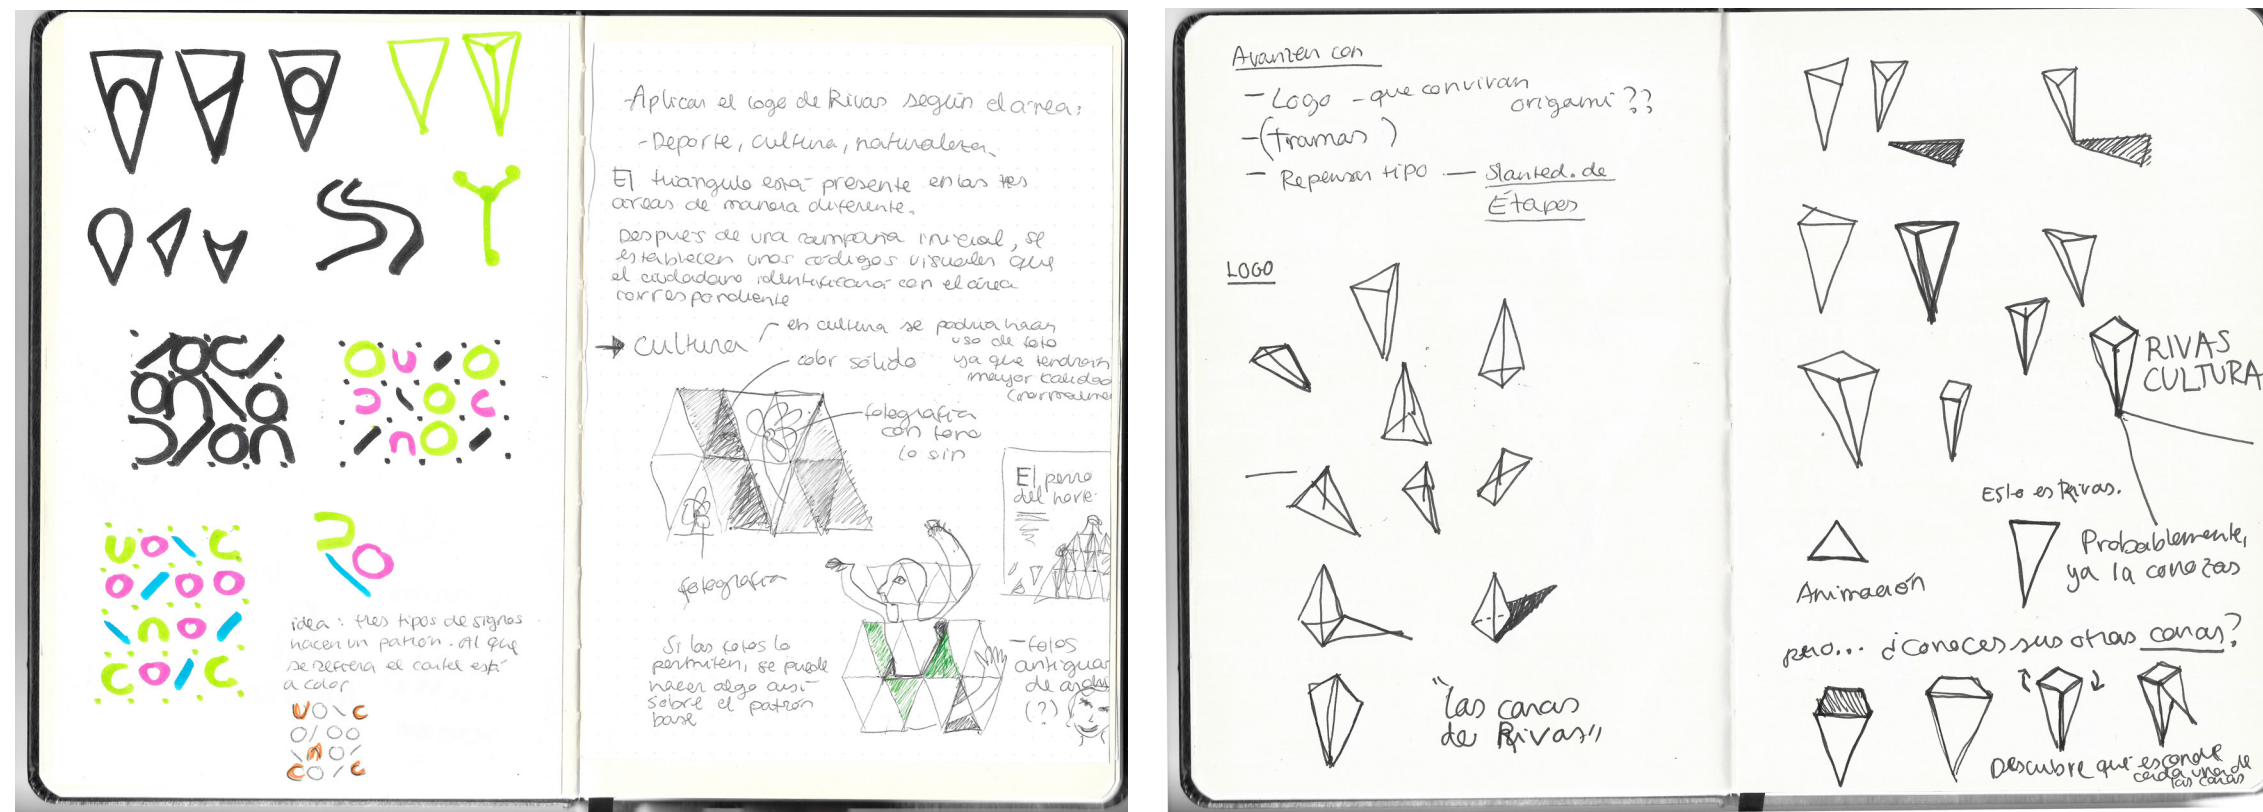 idea: tres tipos de signos
hacen un patrón. Al que
se refiera el cartel está
a color
-Aplicar el logo de Rivas según el área:
-Deporte, cultura, naturaleza.
El triángulo está presente en las tres
áreas de manera diferente.
Después de una campaña inicial, se
establecen unos códigos visuales que
el ciudadano identificará con el área
correspondiente
→ cultura
en cultura se podría hacer
uso de foto
ya que tendrán
mayor calidad
(normalmen
color sólido
fotografía
con fono
lo sin
El perro
del hort
fotografía
Si las fotos lo
permiten, se puede
hacer algo así
sobre el patrón
base
-fotos
antiguas
de arch
(?)
Avanzar con
- Logo - que convivan
origami??
-(Tramas)
- Repensar tipo - Slanted. de
Étapes
LOGO
"las caras
de Rivas"
RIVAS
CULTURA
Esto es Rivas.
Probablemente,
ya la conozcas
Animación
pero... ¿conoces sus otras caras?
Descubre qué esconde
cada una de
las caras